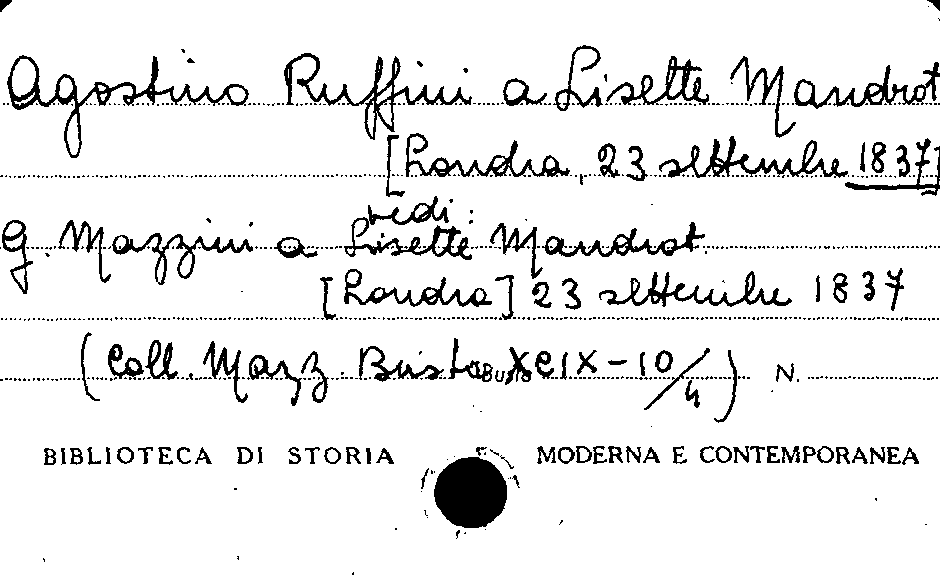 Agostino Ruffini a Lisette Mandrot
[Londra, 23 settembre 1837]
vedi:
G. Mazzini a Lisette Mandrot
[Londra] 23 settembre 1837
(Coll. Mazz. Busta XCIX-10/4) N.
BIBLIOTECA DI STORIA MODERNA E CONTEMPORANEA